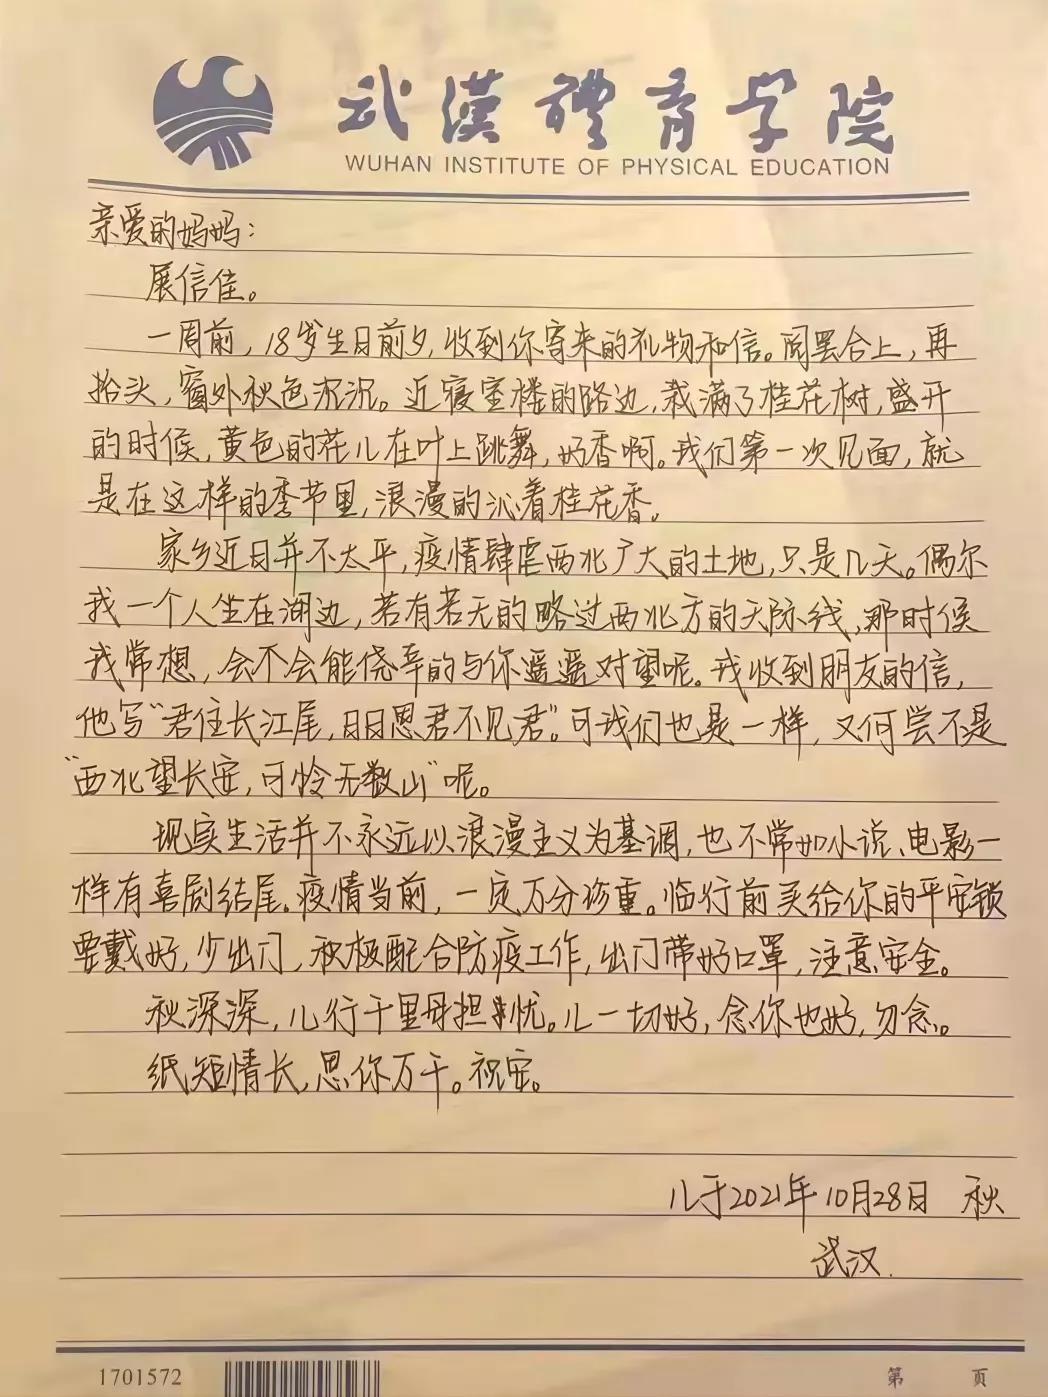 武漢體育学院
WUHAN INSTITUTE OF PHYSICAL EDUCATION
亲爱的妈妈：
展信佳。
一周前，18岁生日前夕，收到你寄来的礼物和信。阅罢合上，再
抬头，窗外秋色沉沉。近寝室楼的路边，栽满了桂花树，盛开
的时候，黄色的花儿在叶上跳舞，好香啊。我们第一次见面，就
是在这样的季节里，浪漫的沁着桂花香。
家乡近日并不太平，疫情肆虐西北广大的土地，只是几天。偶尔
我一个人坐在湖边，若有若无的略过西北方的天际线，那时候
我常想，会不会能侥幸的与你遥遥对望呢。我收到朋友的信，
他写“君住长江尾，日日思君不见君”。可我们也是一样，又何尝不是
“西北望长安，可怜无数山”呢。
现实生活并不永远以浪漫主义为基调，也不常如小说、电影一
样有喜剧结尾。疫情当前，一定万分珍重。临行前买给你的平安锁
要戴好，少出门，积极配合防疫工作，出门带好口罩，注意安全。
秋深深，儿行千里母担忧。儿一切好，念你也好，勿念。
纸短情长，思你万千。祝安。
儿于2021年10月28日 秋
武汉.
1701572
第 页